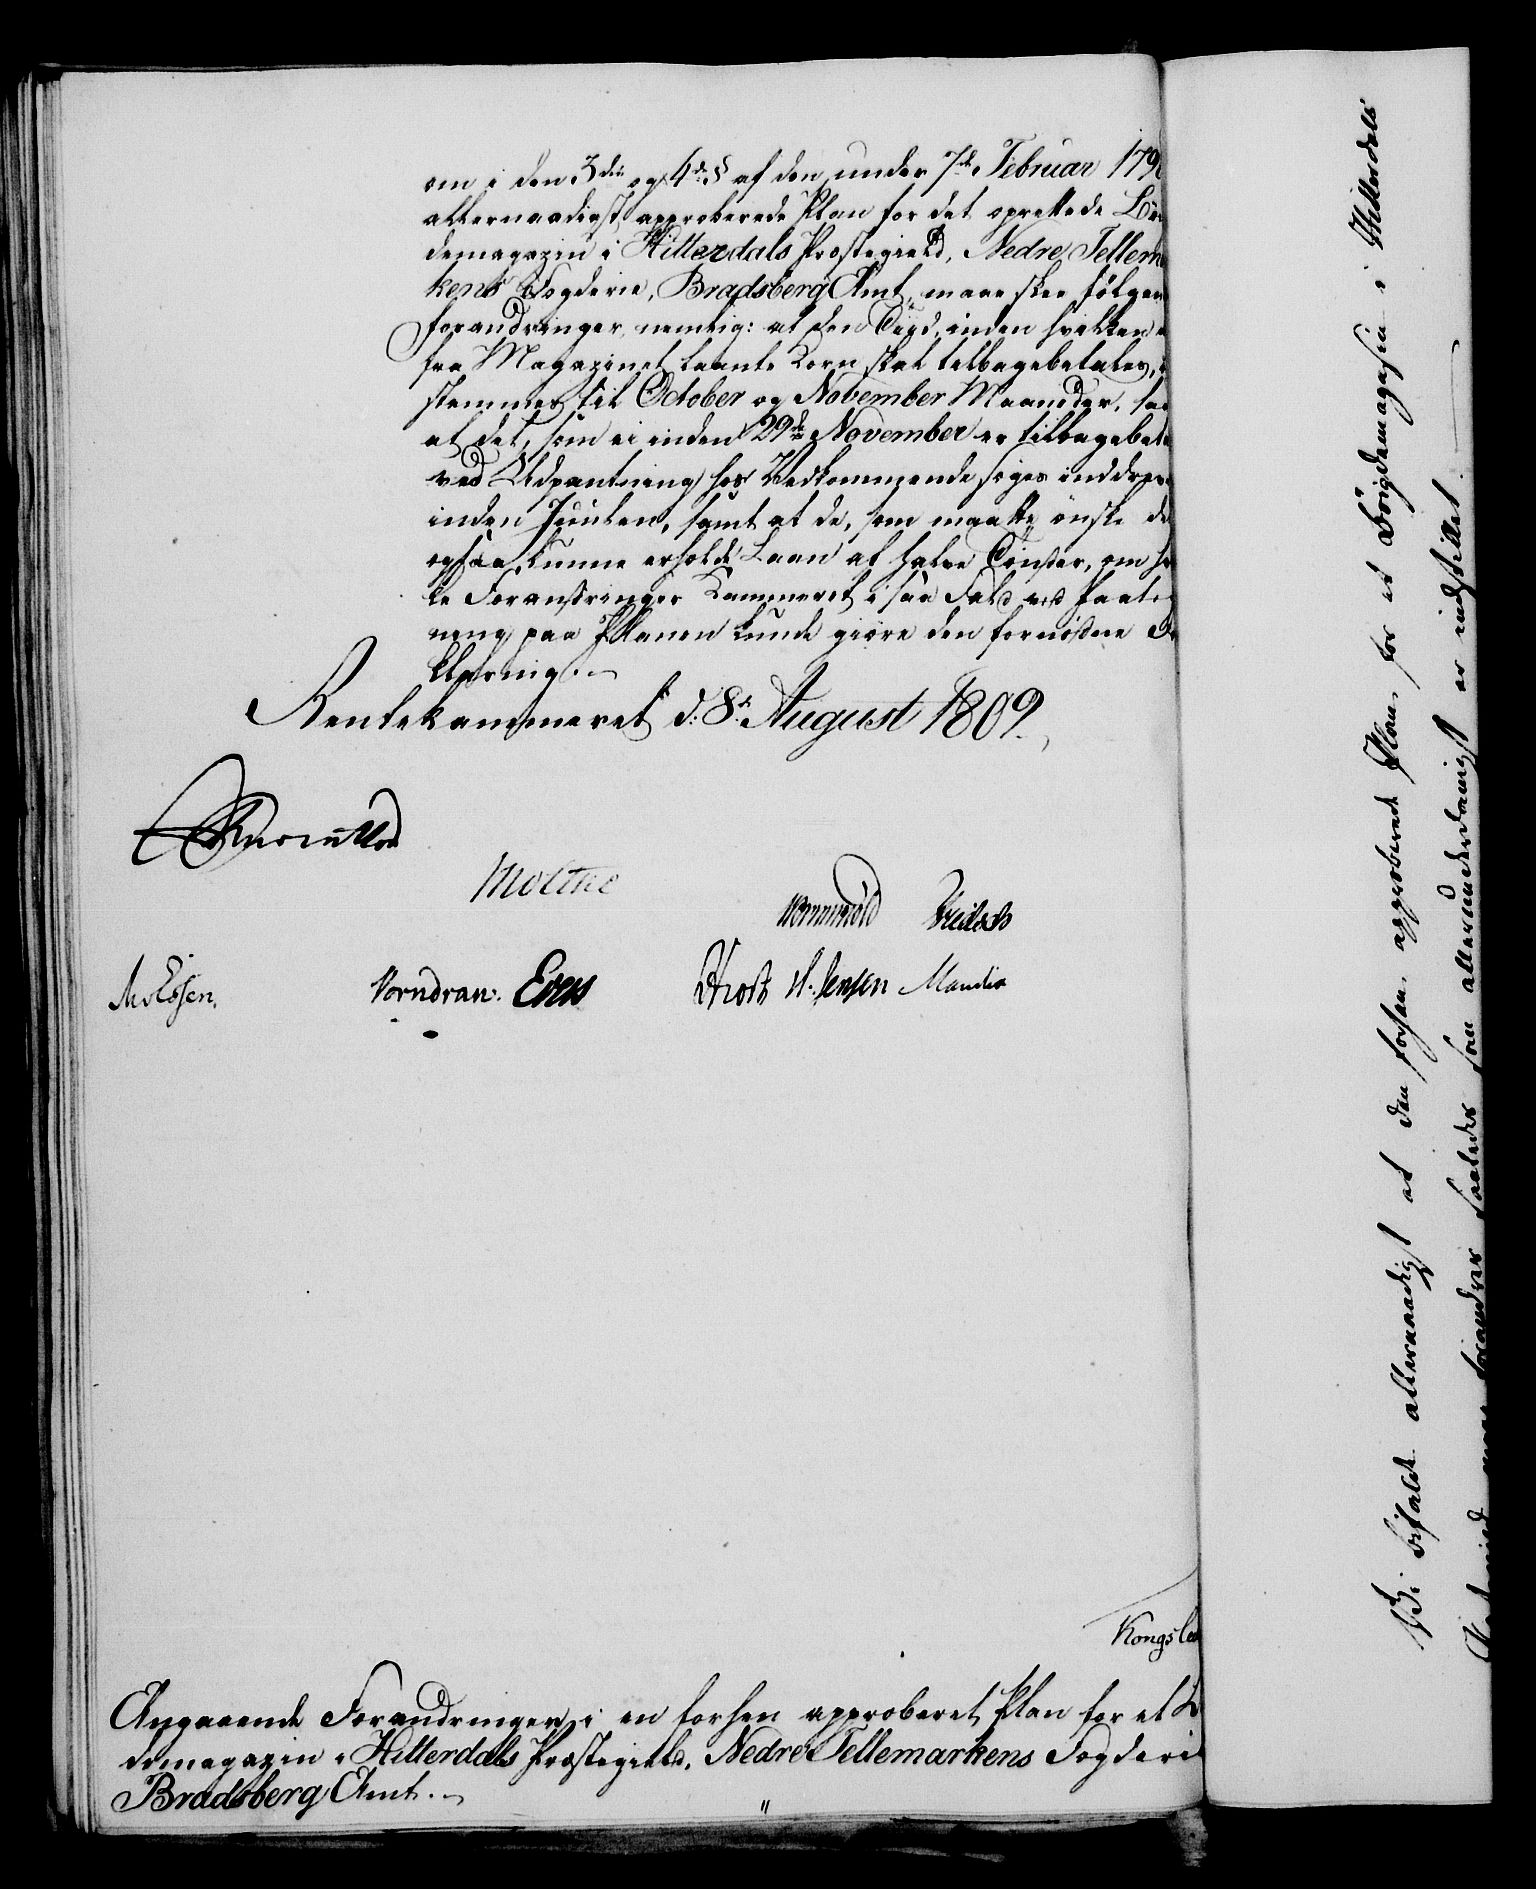 om i den 3die og 4de § af den under 7de Februar 179
allernaadigst approberede Plan for det oprettede
demagazin i Hitterdals Præstegield, Nedre Tellem
kens Fogderie, Bradsberg Amt, maae skee følgen
Forandringer, nemlig: at den Tiid, inden hvilken
fra Magazinet laante Korn skal tilbagebetales,
stemmes til October og November Maaneder, saa
at det, som ei inden 29de November er tilbagebeta
ved Udpantning hos Vedkommende søges inddrev
inden Juulen, samt at de, som maatte ønske de
ogsaa kunne erholde Laan af halve Tønder, om
Forandringer Kammeret i saa Fald ved Paateg
ning paa Planen kunde giøre den fornødne
klæring.
Rentekammeret d: 8de August 1809.
Moltke
Wormskiold
Vorndran. Evers H. Jensen
Kongs
Angaaende Forandringer i en forhen approberet Plan for et
demagazin i Hitterdals Præstegield, Nedre Tellemarkens Fogderie
Bradsberg Amt.
Vi bifalde allernaadigst at den forhen approberede Plan for et Bøigdemagasin i Hitterdals
maae forandres saaledes som allerunderdanigst er indstillet.